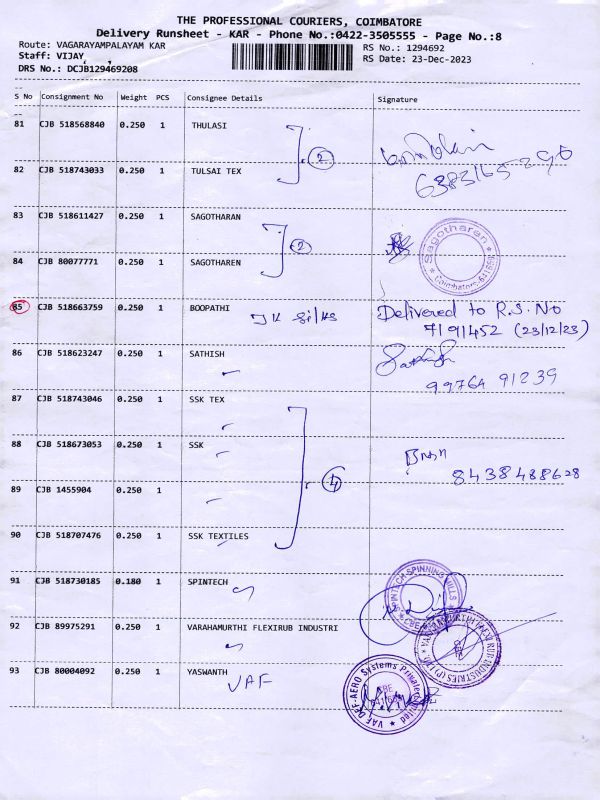 THE PROFESSIONAL COURIERS, COIMBATORE
Delivery Runsheet - KAR - Phone No.:0422-3505555 - Page No.:8
Route: VAGARAYAMPALAYAM KAR
RS No.: 1294692
Staff: VIJAY,
RS Date: 23-Dec-2023
DRS No.: DCJB129469208
S No Consignment No Weight PCS Consignee Details Signature
81 CJB 518568840 0.250 1 THULASI
2
6383165290
82 CJB 518743033 0.250 1 TULSAI TEX
83 CJB 518611427 0.250 1 SAGOTHARAN
2
Sagotharan
Coimbatore-641659
84 CJB 80077771 0.250 1 SAGOTHAREN
85 CJB 518663759 0.250 1 BOOPATHI JK Silks Delivered to R.S.No
7191452 (23/12/23)
86 CJB 518623247 0.250 1 SATHISH Sathish
99764 91239
87 CJB 518743046 0.250 1 SSK TEX
88 CJB 518673053 0.250 1 SSK
8438488628
4
89 CJB 1455904 0.250 1
90 CJB 518707476 0.250 1 SSK TEXTILES
91 CJB 518730185 0.180 1 SPINTECH
SPINTECH SPINNING MILLS
CBE
92 CJB 89975291 0.250 1 VARAHAMURTHI FLEXIRUB INDUSTRI
VARAHAMURTHI FLEXIRUB INDUSTRIES (P) LTD
93 CJB 80004092 0.250 1 YASWANTH
VAF
VAF DFF-AERO Systems Private Limited
CBE